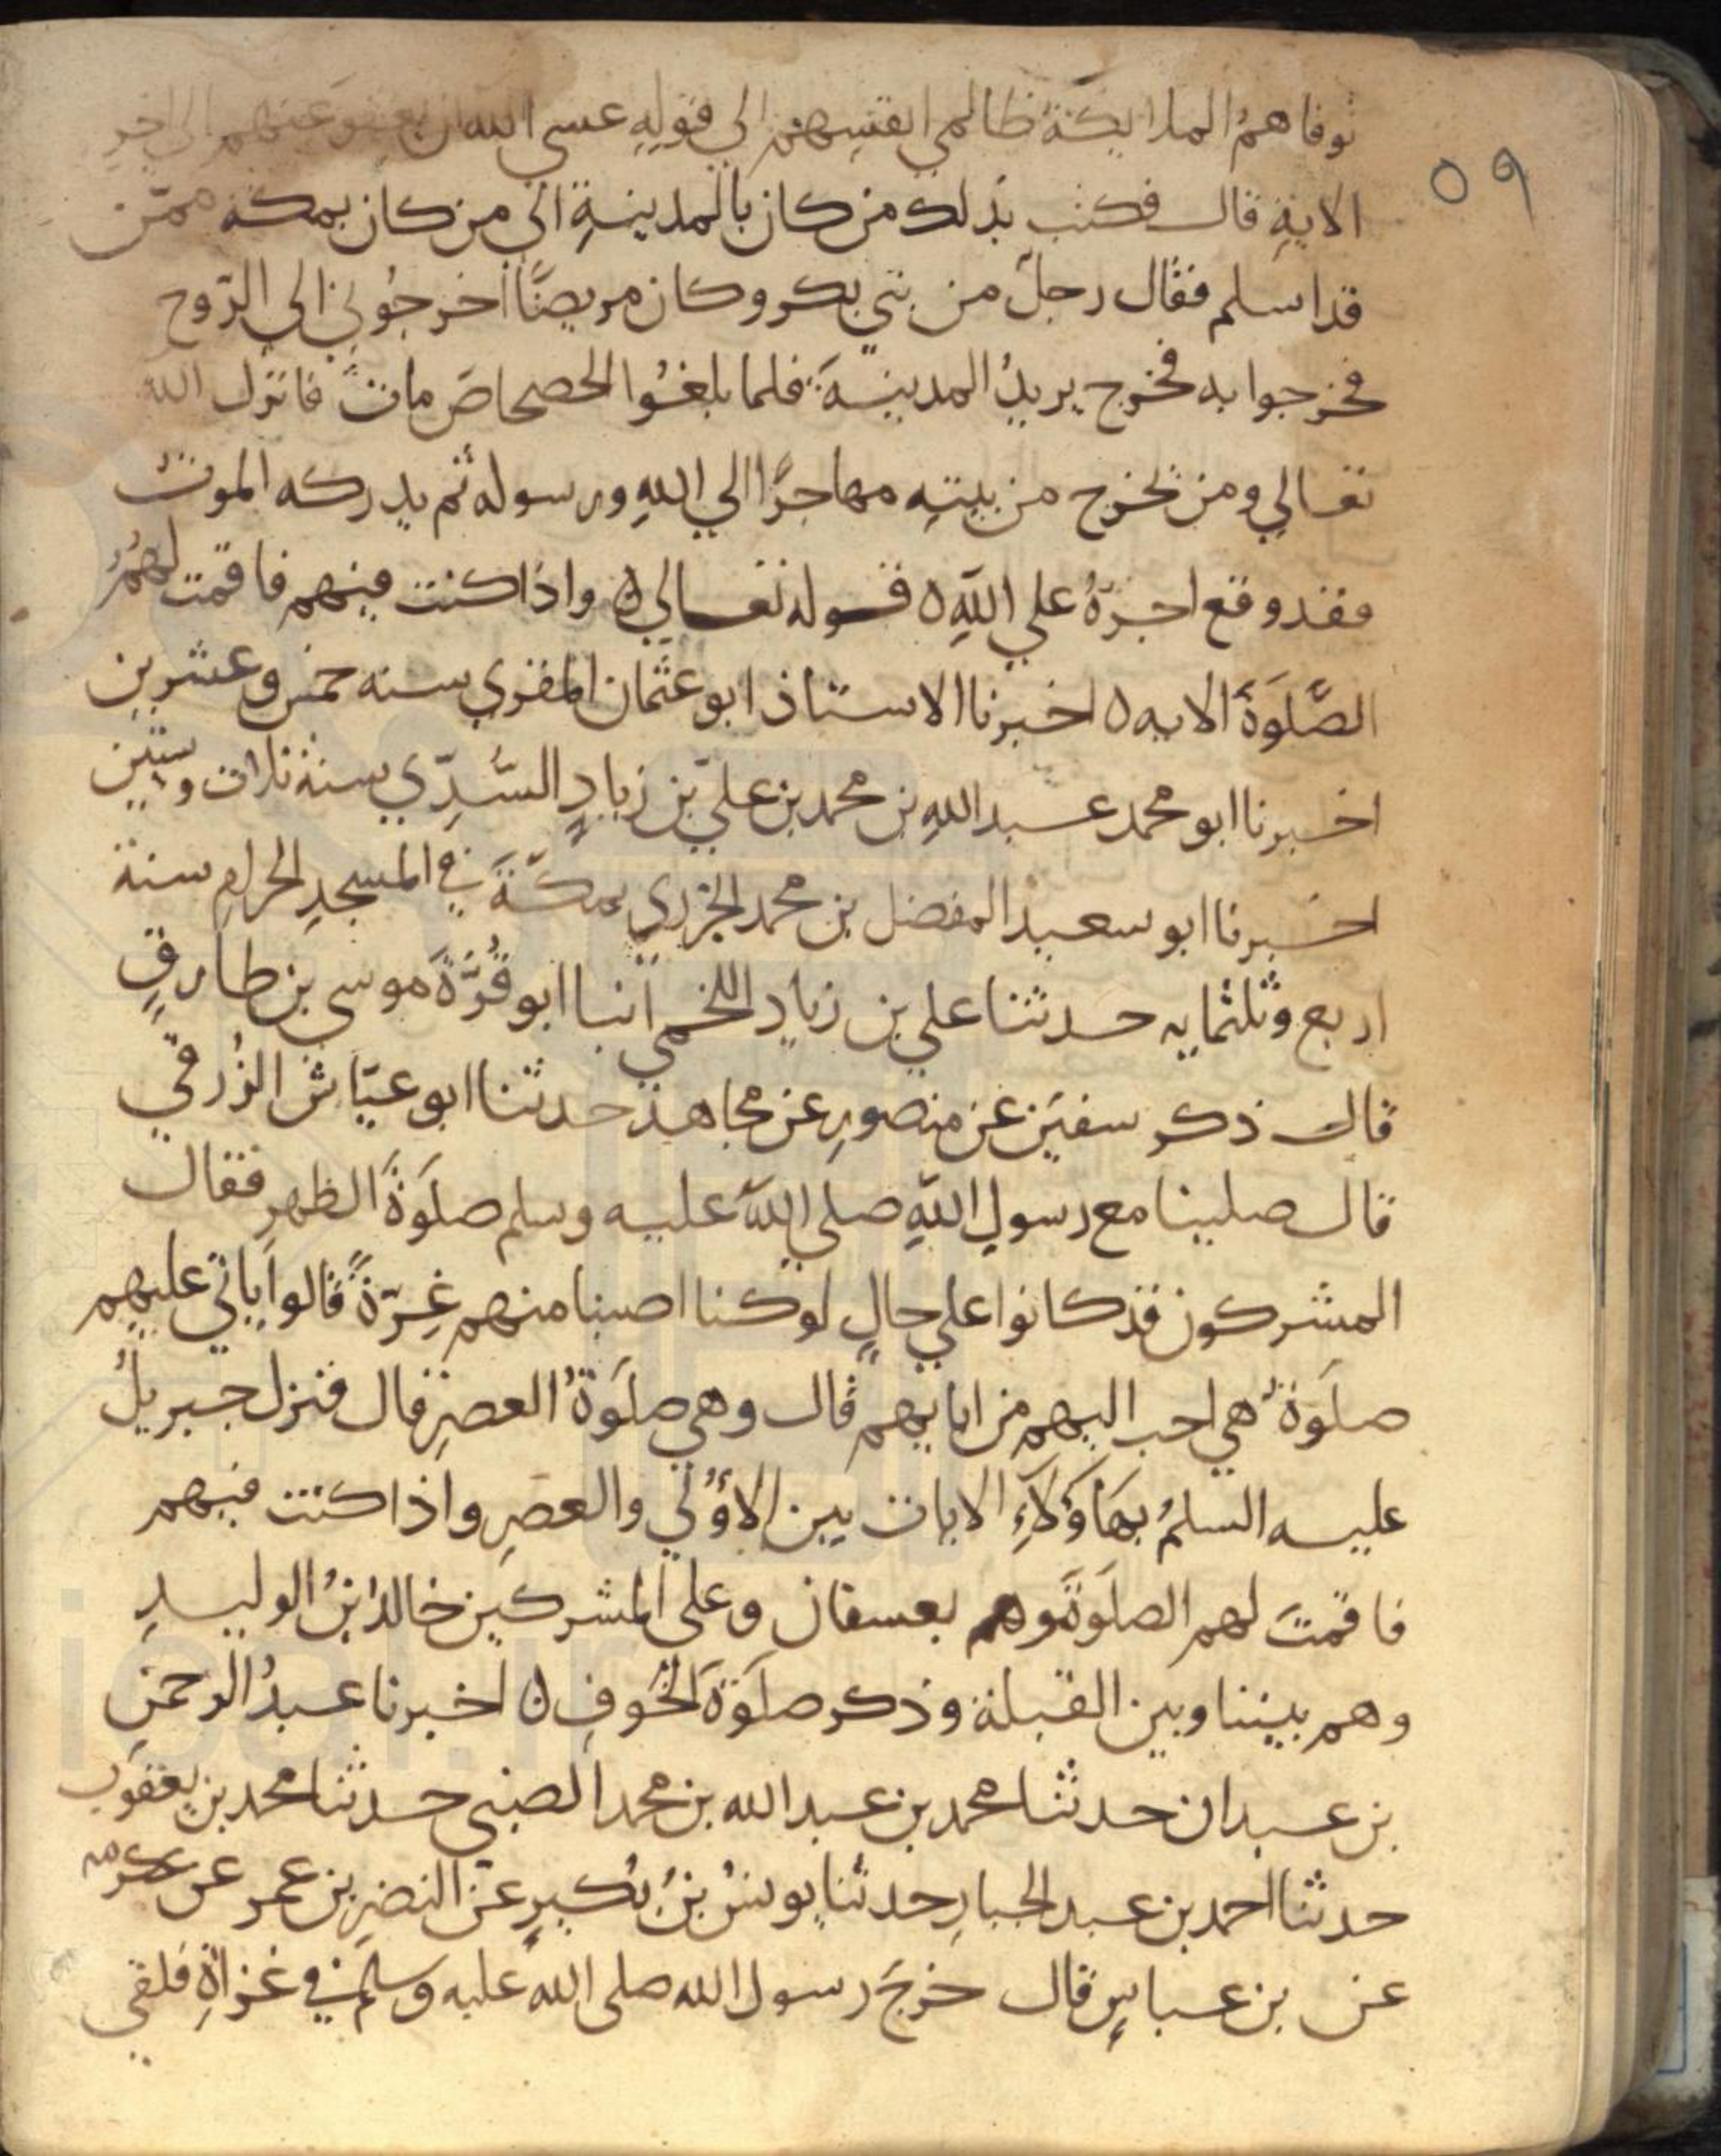 ٥٩
توفاهم الملايكة ظالمي انفسهم الي قوله عسي الله ان يعفو عنهم الي اخر
الاية قال فكتب بذلك من كان بالمدينة الي من كان بمكة ممن
قد اسلم فقال رجل من بني بكر وكان مريضًا اخرجوني الي الروح
فخرجوا به فخرج يريد المدينة فلما بلغوا الحصحاص مات فانزل الله
تعالي ومن يخرج من بيته مهاجرًا الي الله ورسوله ثم يدركه الموت
فقد وقع اجره علي الله ه قوله تعالي ه واذا كنت فيهم فاقمت لهم
الصلوة الايه ه اخبرنا الاستاذ ابو عثمان المقري سنه خمس وعشرين
اخبرنا ابو محمد عبد الله بن محمد بن علي بن زياد السدي سنة ثلاث وستين
اخبرنا ابو سعيد المفضل بن محمد الجزري بمكة في المسجد الحرام سنة
اربع وثلثمايه حدثنا علي بن زياد اللخمي انبا ابو قرة موسي بن طارق
قال ذكر سفين عن منصور عن مجاهد حدثنا ابو عياش الزرقي
قال صلينا مع رسول الله صلي الله عليه وسلم صلوة الظهر فقال
المشركون قد كانوا علي حال لو كنا اصبنا منهم غرة قالوا ياتي عليهم
صلوة هي احب اليهم من ابايهم قال وهي صلوة العصر قال فنزل جبريل
عليه السلم بهاؤلاء الايات بين الاولي والعصر واذا كنت فيهم
فاقمت لهم الصلوة وهم بعسفان وعلي المشركين خالد ابن الوليد
وهم بيننا وبين القبلة وذكر صلوة الخوف ه اخبرنا عبد الرحمن
بن عبدان حدثنا محمد بن عبد الله بن محمد الضبي حدثنا محمد بن يعقوب
حدثنا احمد بن عبد الجبار حدثنا يونس بن بكير عن النضر بن عمر عن عكرمه
عن بن عباس قال خرج رسول الله صلى الله عليه وسلم في غزاة فلقي